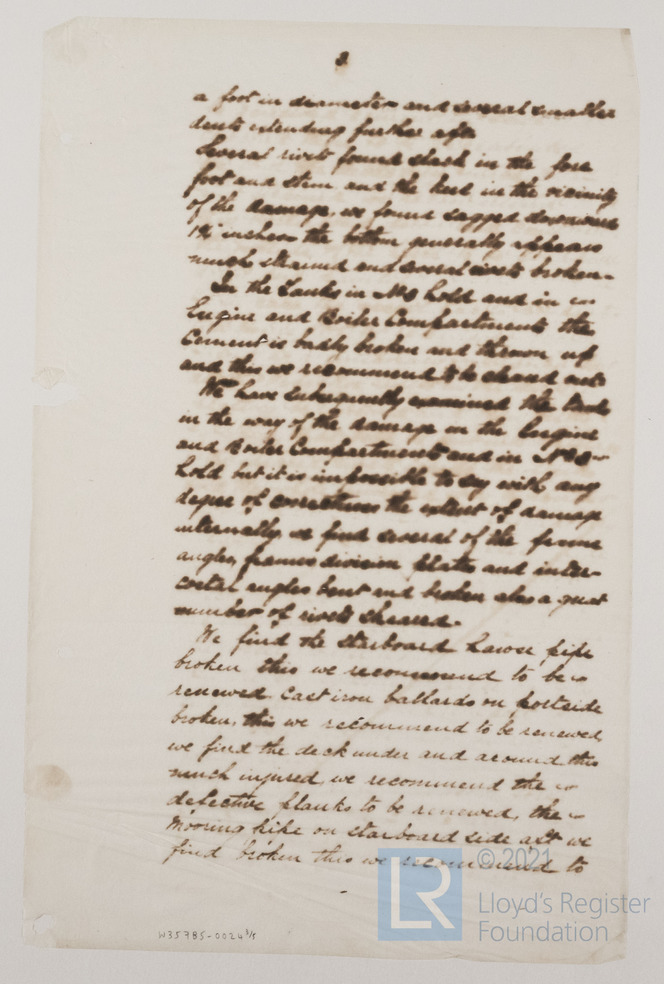 3
a foot in diameter and several smaller
dents extending further aft.
Several rivets found slack in the fore
foot and stem and the keel in the vicinity
of the damage, we found sagged downwards
inches the bottom generally appears
much strained and several rivets broken.
In the Tanks in No 2 hold and in
Engine and Boiler Compartments the
Cement is badly broken and thrown up
and this we recommend to be cleared out.
We have subsequently examined the tank
in the way of the damage in the Engine
and Boiler Compartments and in No 2
hold but it is impossible to say with any
degree of correctness the extent of damage
internally, we find several of the frame
angles, frames division plates and inter-
costal angles bent and broken also a great
number of rivets sheared.
We find the starboard hawse pipe
broken this we recommend to be
renewed. Cast iron ballards on portside
broken, this we recommend to be renewed
we find the deck under and around this
much injured, we recommend the
defective planks to be renewed, the
Mooring pipe on starboard side aft we
find broken this we recommend to
© 2021
LR
Lloyd's Register
Foundation
W35785-0024 3/5